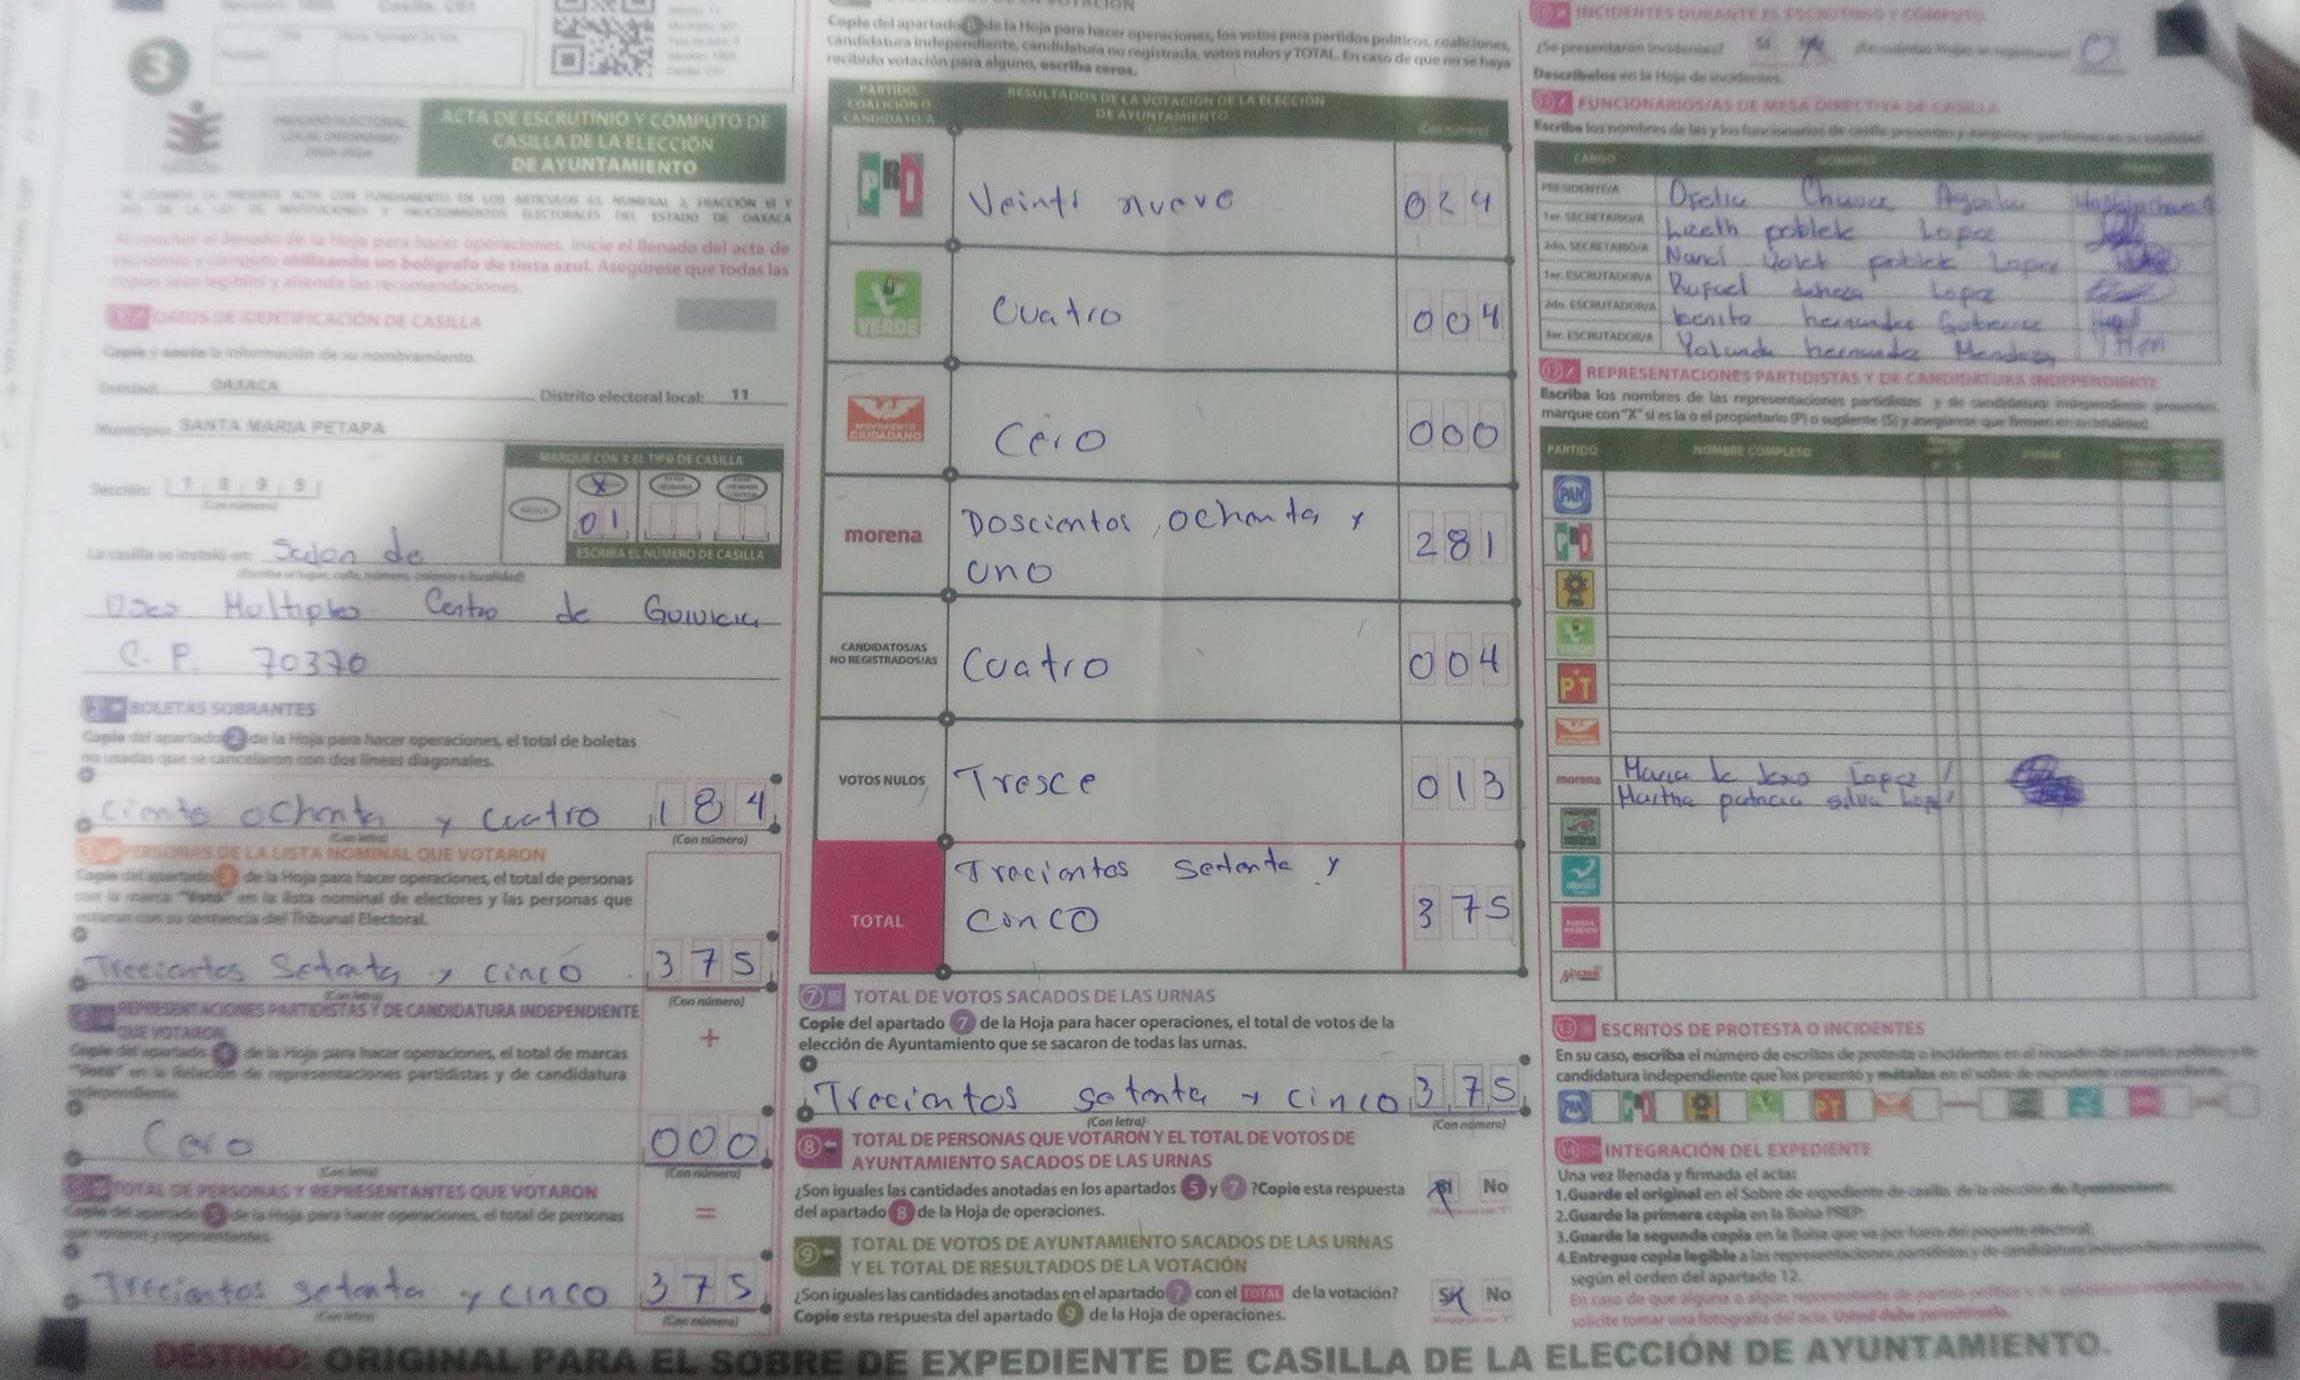 3
ACTA DE ESCRUTINIO Y CÓMPUTO DE
CASILLA DE LA ELECCIÓN
DE AYUNTAMIENTO
Al concluir el llenado de la Hoja para hacer operaciones, inicie el llenado del acta de
escrutinio y cómputo utilizando un bolígrafo de tinta azul. Asegúrese que todas las
copias sean legibles y atienda las recomendaciones.
DATOS DE IDENTIFICACIÓN DE CASILLA
Copie y anote la información de su nombramiento.
OAXACA Distrito electoral local: 11
Municipio: SANTA MARIA PETAPA
MARQUE CON X EL TIPO DE CASILLA
Sección: 1 8 9 5
(Con número)
BÁSICA
X
01
ESCRIBA EL NÚMERO DE CASILLA
La casilla se instaló en: Salon de
Usos Multiples Centro de
C. P. 70370
BOLETAS SOBRANTES
Copie del apartado 2 de la Hoja para hacer operaciones, el total de boletas
no usadas que se cancelaron con dos líneas diagonales.
ciento ochenta y cuatro 184
(Con número)
PERSONAS DE LA LISTA NOMINAL QUE VOTARON
Copie del apartado 3 de la Hoja para hacer operaciones, el total de personas
con la marca "Votó" en la lista nominal de electores y las personas que
votaron con su sentencia del Tribunal Electoral.
Trecientos Setenta y cinco 375
(Con número)
REPRESENTACIONES PARTIDISTAS Y DE CANDIDATURA INDEPENDIENTE
QUE VOTARON
+
Copie del apartado 4 de la Hoja para hacer operaciones, el total de marcas
"Votó" en la Relación de representaciones partidistas y de candidatura
independiente.
Cero 000
(Con número)
TOTAL DE PERSONAS Y REPRESENTANTES QUE VOTARON
=
Copie del apartado 5 de la Hoja para hacer operaciones, el total de personas
que votaron y representantes.
Trecientos setenta y cinco 375
(Con número)
Copie del apartado 6 de la Hoja para hacer operaciones, los votos para partidos políticos, coaliciones,
candidatura independiente, candidatura no registrada, votos nulos y TOTAL. En caso de que no se haya
recibido votación para alguno, escriba ceros.
PARTIDO,
COALICIÓN O
CANDIDATO/A
RESULTADOS DE LA VOTACIÓN DE LA ELECCIÓN
DE AYUNTAMIENTO
(Con número)
PRI Veinti nueve 029
VERDE Cuatro 004
MOVIMIENTO
CIUDADANO
Cero 000
morena
Doscientos, ochenta y
uno
281
CANDIDATOS/AS
NO REGISTRADOS/AS
Cuatro 004
VOTOS NULOS Tresce 013
TOTAL
Trecientos Setenta y
cinco
375
7 TOTAL DE VOTOS SACADOS DE LAS URNAS
Copie del apartado 7 de la Hoja para hacer operaciones, el total de votos de la
elección de Ayuntamiento que se sacaron de todas las urnas.
Trecientos setenta y cinco 375
(Con letra) (Con número)
8 TOTAL DE PERSONAS QUE VOTARON Y EL TOTAL DE VOTOS DE
AYUNTAMIENTO SACADOS DE LAS URNAS
¿Son iguales las cantidades anotadas en los apartados 5 y 7 ?Copie esta respuesta
del apartado 8 de la Hoja de operaciones.
Sí No
9 TOTAL DE VOTOS DE AYUNTAMIENTO SACADOS DE LAS URNAS
Y EL TOTAL DE RESULTADOS DE LA VOTACIÓN
¿Son iguales las cantidades anotadas en el apartado 7 con el TOTAL de la votación?
Copie esta respuesta del apartado 9 de la Hoja de operaciones.
Sí No
INCIDENTES DURANTE EL ESCRUTINIO Y CÓMPUTO
¿Se presentaron incidentes? Sí
Descríbelos en la Hoja de incidentes.
FUNCIONARIOS/AS DE MESA DIRECTIVA DE CASILLA
CARGO
PRESIDENTE/A
1er. SECRETARIO/A poblete Lopez
2do. SECRETARIO/A poblete Lopez
1er. ESCRUTADOR/A Lopez
2do. ESCRUTADOR/A benito hernandez Gutierrez
3er. ESCRUTADOR/A Yolanda hernandez Mendoza
12 REPRESENTACIONES PARTIDISTAS Y DE CANDIDATURA INDEPENDIENTE
Escriba los nombres de las representaciones partidistas y de candidatura independiente presentes,
marque con "X" si es la o el propietario (P) o suplente (S) y asegúrese que firmen en su totalidad.
PARTIDO NOMBRE COMPLETO
PAN
PRI
PRD
VERDE
PT
morena Maria Lopez
Martha patricia
13 ESCRITOS DE PROTESTA O INCIDENTES
En su caso, escriba el número de escritos de protesta o incidentes en el recuadro del partido político y de
candidatura independiente que los presentó y métalos en el sobre de expediente correspondiente.
14 INTEGRACIÓN DEL EXPEDIENTE
Una vez llenada y firmada el acta:
1.Guarde el original en el Sobre de expediente de casilla de la elección de Ayuntamiento;
2.Guarde la primera copia en la Bolsa PREP;
3.Guarde la segunda copia en la Bolsa que va por fuera del paquete electoral;
4.Entregue copia legible a las representaciones partidistas y de candidatura independiente presentes,
según el orden del apartado 12.
solicite tomar una fotografía del acta, Usted debe permitirselo.
DESTINO: ORIGINAL PARA EL SOBRE DE EXPEDIENTE DE CASILLA DE LA ELECCIÓN DE AYUNTAMIENTO.